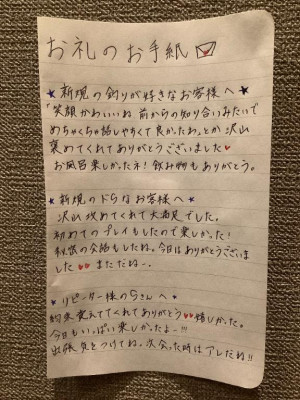 お礼のお手紙
★新規の釣りが好きなお客様へ★
「笑顔かわいいね、前からの知り合いみたいで
めちゃくちゃ話しやすくて良かったわ」とか沢山
褒めてくれてありがとうございました♥
お風呂楽しかったネ!飲み物もありがとう。
★新規のドSなお客様へ★
沢山攻めてくれて大満足でした。
初めてのプレイもしたので楽しかった!
秘密の会話もしたね。今日はありがとうございま
した♥♥まただね〜。
★リピーター様のSさんへ★
約束覚えててくれてありがとう♥嬉しかった。
今日もいっぱい楽しかったよー!!!
出張気をつけてね。次会った時はアレだね!!